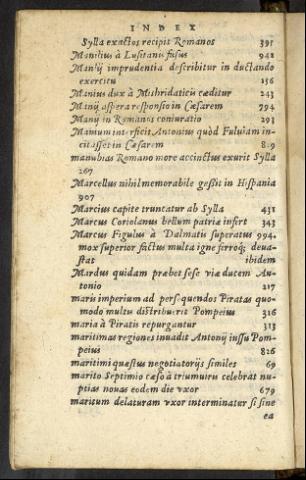 INDEX
Sylla exactos recipit Romanos 391
Manilius à Lusitanis fusus 942
Manij imprudentia describitur in ductando
exercitu 156
Manius dux à Mithridaticis caeditur 243
Manij aspera responsio in Caesarem 794
Manij in Romanos coniuratio 293
Manium interficit Antonius quòd Fuluiam in-
citasset in Caesarem 819
manubias Romano more accinctus exurit Sylla
267
Marcellus nihil memorabile gessit in Hispania
907
Marcius capite truncatur ab Sylla 431
Marcus Coriolanus bellum patriæ infert 343
Marcus Figulus à Dalmatis superatus 994.
mox superior factus multa igne ferroq; deua-
stat ibidem
Mardus quidam præbet sese viæ ducem An-
tonio 217
maris imperium ad persequendos Piratas quo-
modo multis distribuerit Pompeius 316
maria à Piratis repurgantur 313
maritimas regiones inuadit Antonij iussu Pom-
peius 826
maritimi quæstus negotiatorijs similes 69
marito Septimio cæso à triumuiris celebrat nu-
ptias nouas eodem die vxor 679
maritum delaturam vxor interminatur si sine
ea